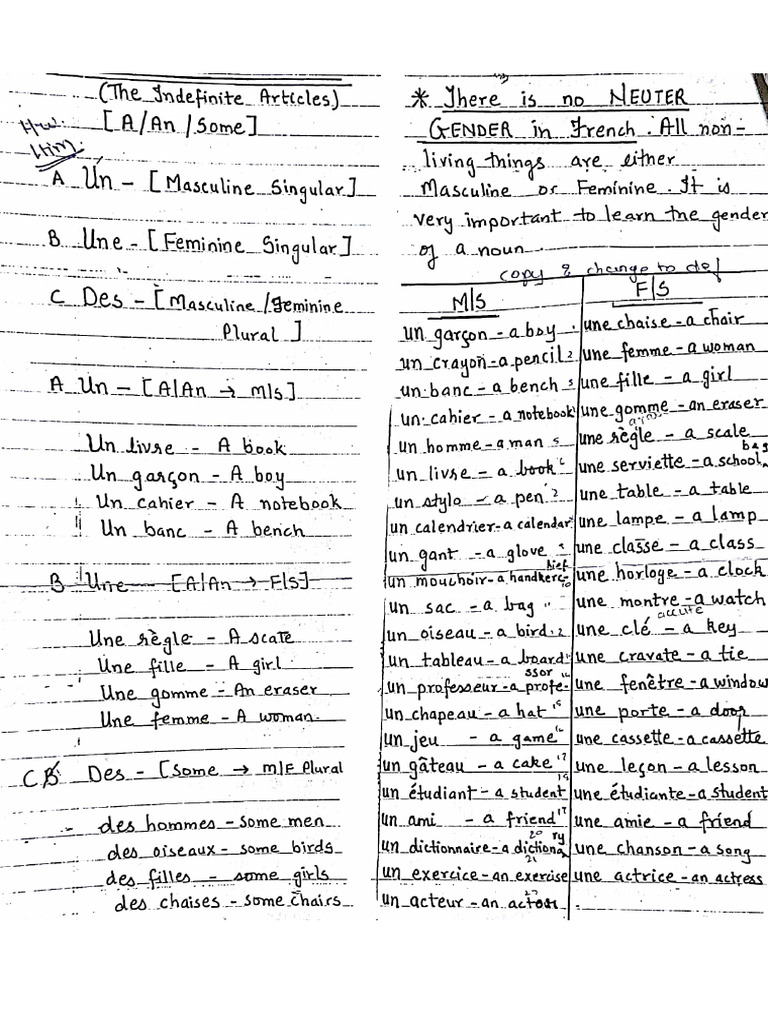 (The Indefinite Articles)
[A/An/Some]
H.W.
A Un - [Masculine Singular]
B Une - [Feminine Singular]
C Des - [Masculine/Feminine
Plural]
A Un - [A/An → M/S]
Un livre - A book
Un garçon - A boy
Un cahier - A notebook
Un banc - A bench
B Une - [A/An → F/S]
Une règle - A scale
Une fille - A girl
Une gomme - An eraser
Une femme - A woman.
C B Des - [Some → M/F Plural
des hommes - some men
des oiseaux - some birds
des filles - some girls
des chaises - some chairs
* There is no NEUTER
GENDER in French. All non-
living things are either
Masculine or Feminine. It is
very important to learn the gender
of a noun.
copy & change to def
M/S
un garçon - a boy
un crayon - a pencil 2
un banc - a bench
un cahier - a notebook
un homme - a man
un livre - a book
un stylo - a pen
un calendrier - a calendar
un gant - a glove
hief
un mouchoir - a handkerc-
un sac - a bag
un oiseau - a bird
un tableau - a board
ssor
un professeur - a profe-
un chapeau - a hat
un jeu - a game
un gâteau - a cake
un étudiant - a student
un ami - a friend
20 ry
un dictionnaire - a dictiona
21
un exercice - an exercise
22
un acteur - an actor
F/S
une chaise - a chair
une femme - a woman
une fille - a girl
une gomme - an eraser
une règle - a scale
bag
une serviette - a school
une table - a table
une lampe - a lamp
une classe - a class
une horloge - a clock
une montre - a watch
accute
une clé - a key
une cravate - a tie
une fenêtre - a window
une porte - a door
une cassette - a cassette
une leçon - a lesson
une étudiante - a student
une amie - a friend
une chanson - a song
une actrice - an actress